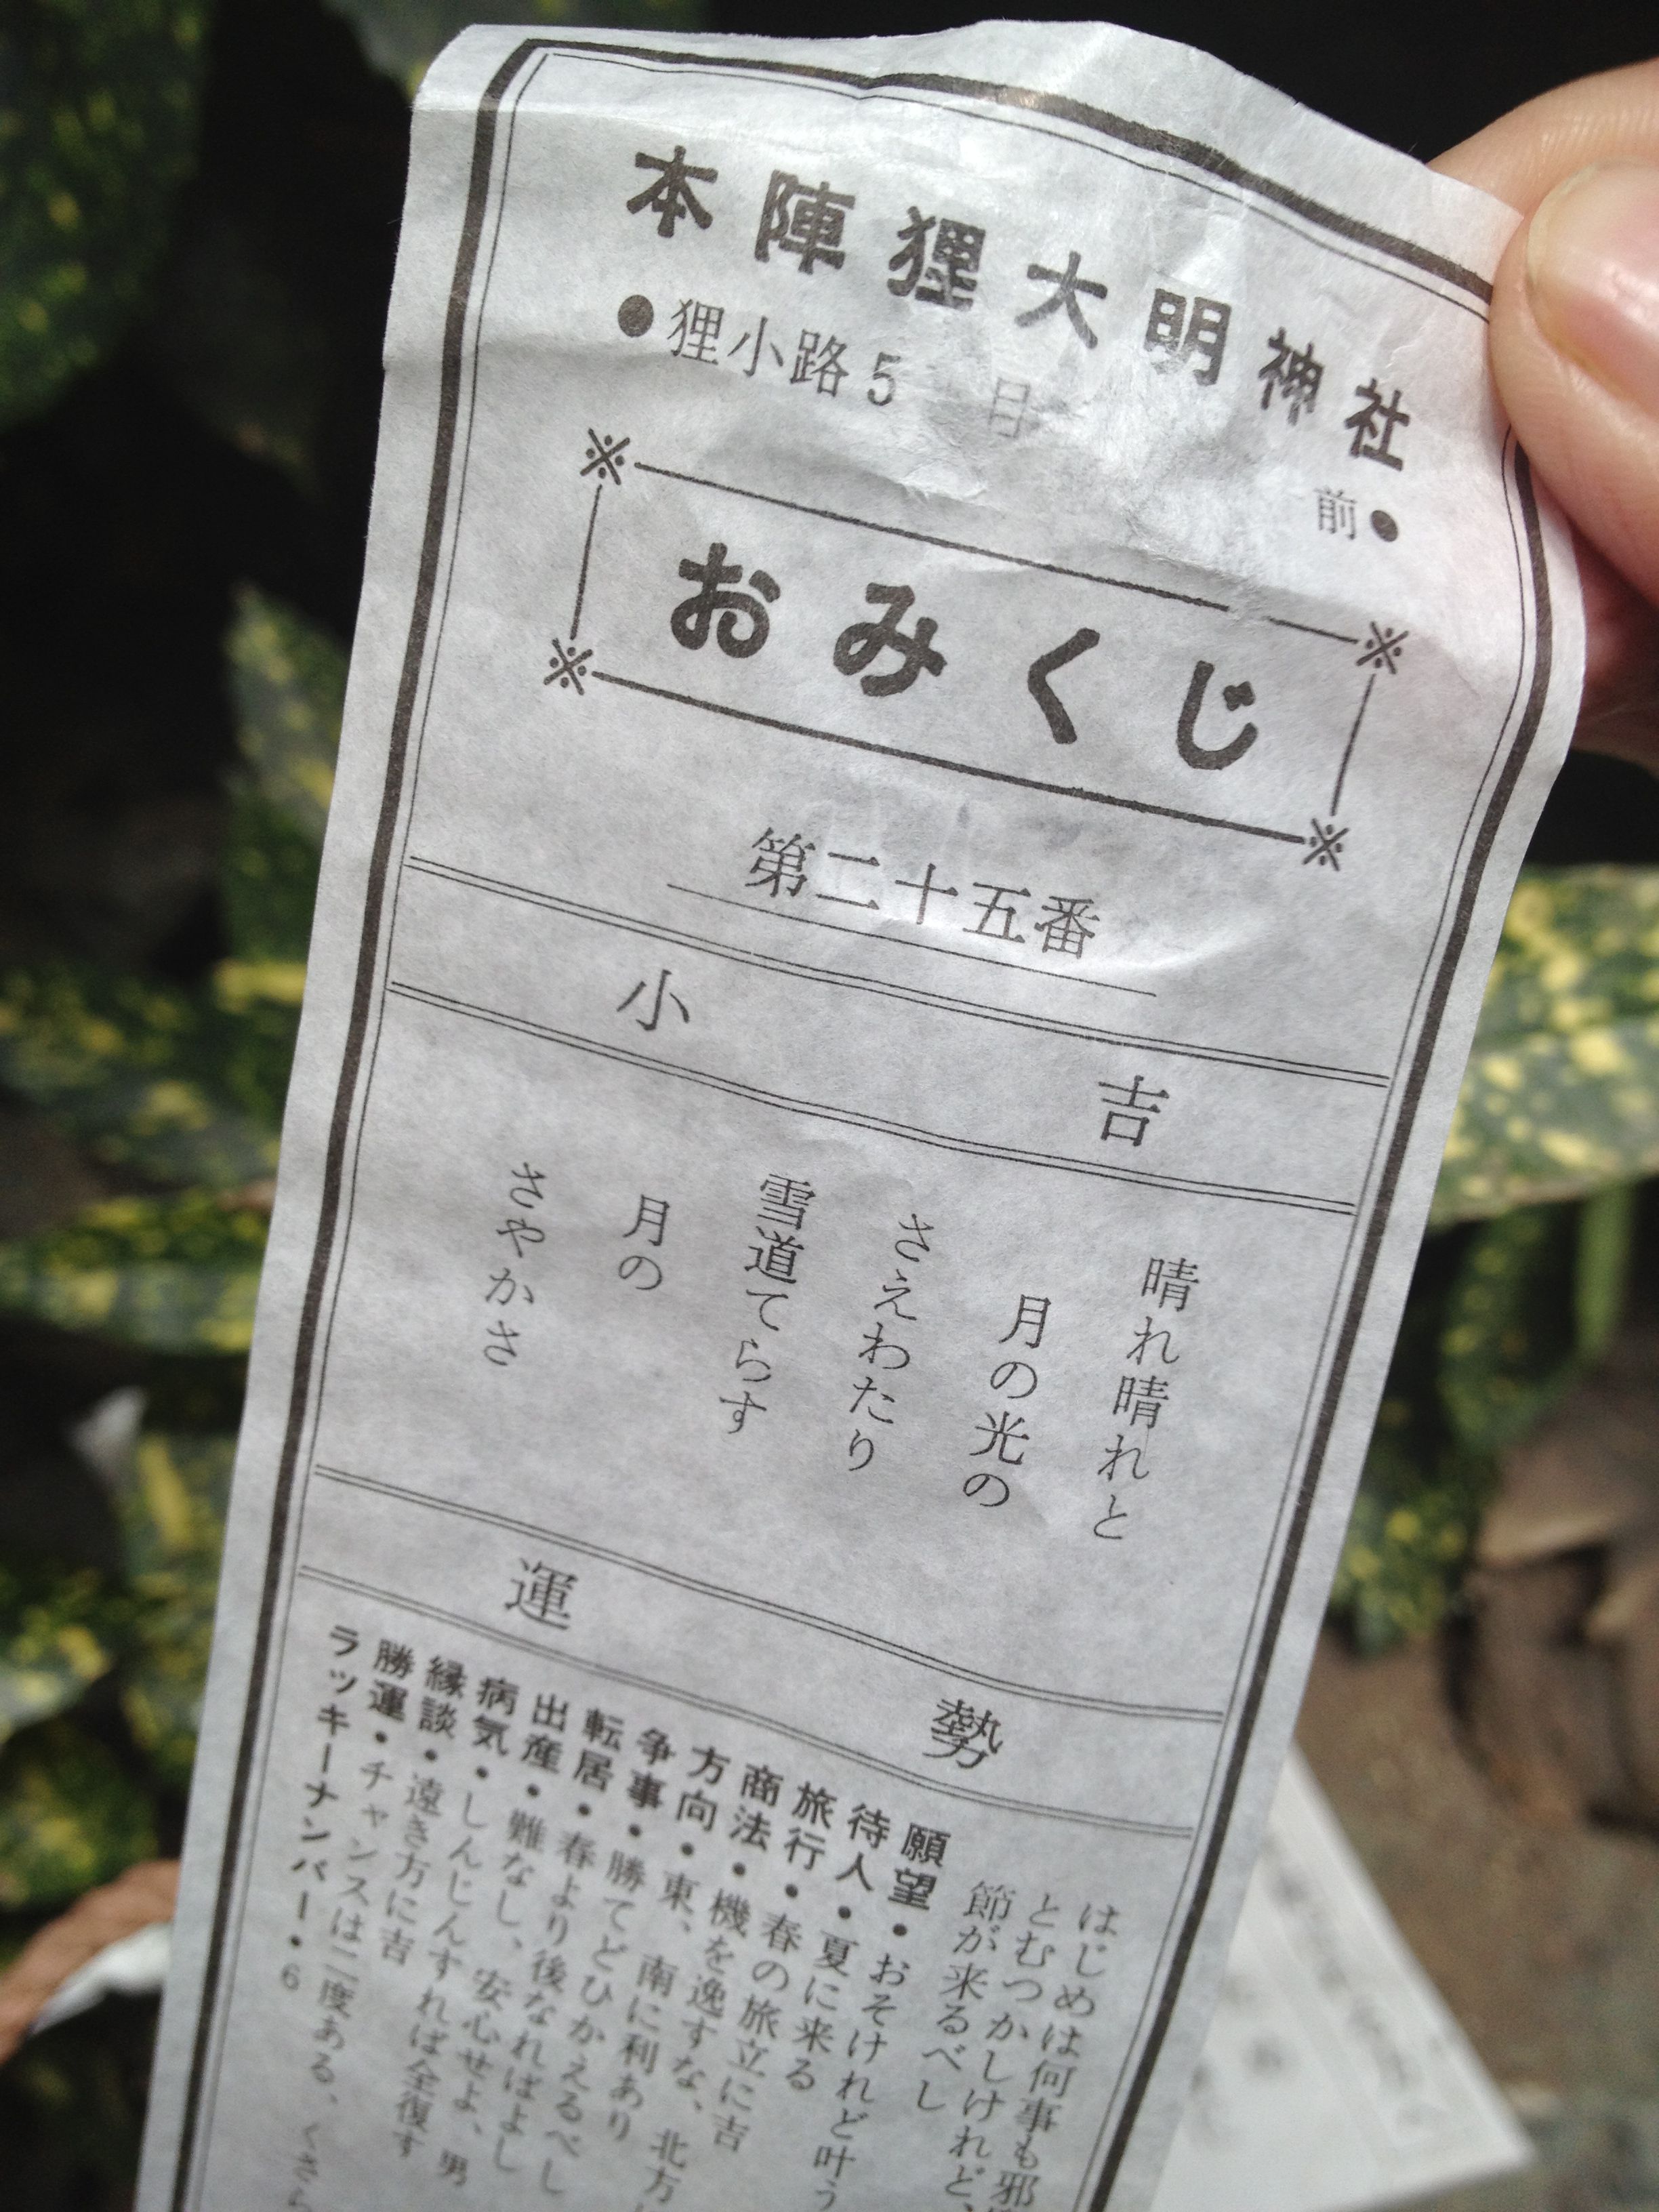 本陣狸大明神社
●狸小路5 目 前●
おみくじ
第二十五番
小吉
晴れ晴れと
月の光の
さえわたり
雪道てらす
月の
さやかさ
運勢
はじめは何事も邪
とむつかしけれど、
節が来るべし
願望・おそけれど叶う
待人・夏に来る
旅行・春の旅立に吉
商法・機を逸すな、北方
方向・東、南に利あり
争事・勝てどひかえるべし
転居・春より後なればよし
出産・難なし、安心せよ、男
病気・しんじんすれば全復す
縁談・遠き方に吉
勝運・チャンスは二度ある、くさら
ラッキーナンバー・6